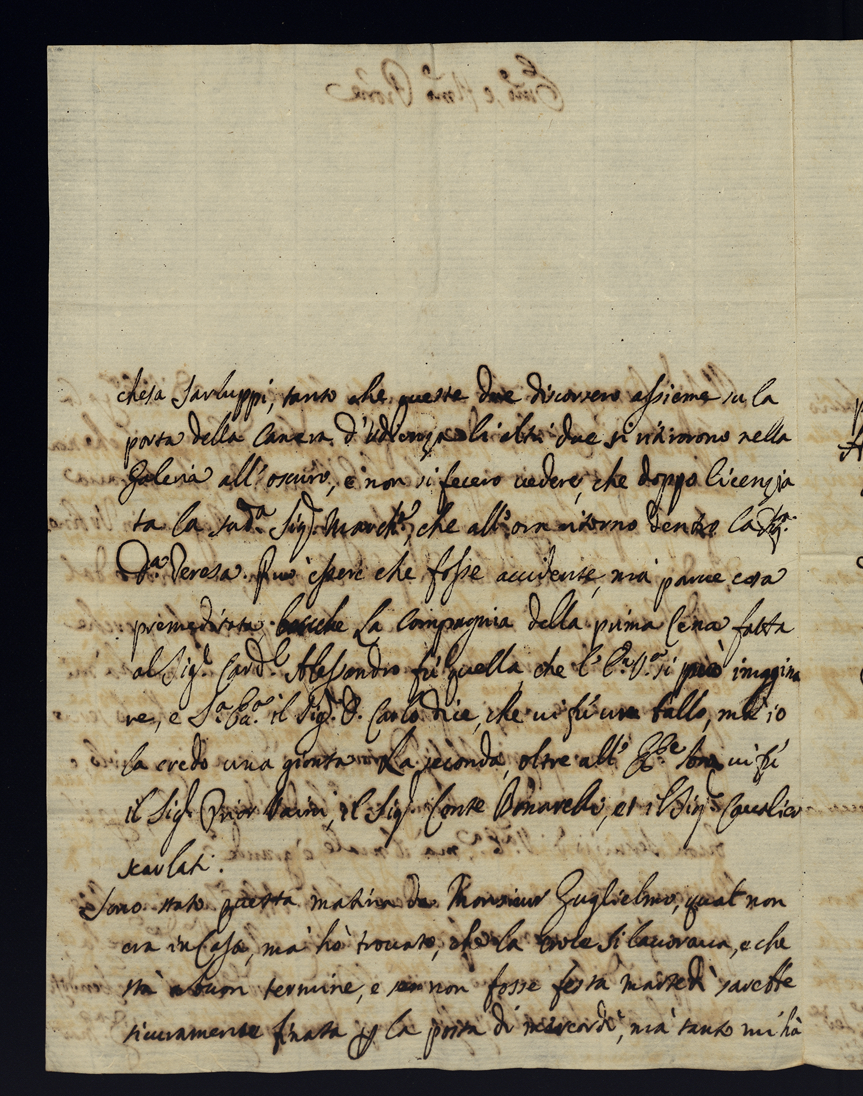 chesa Sarluppi, tanto che queste due discorrero assieme su la
porta della Camera d'Udienza e li altri due si ritirorono nella
Galeria all'oscuro, e non si fecero vedere, che doppo licenzia
ta la sud.a Sig.ra March.a, che all'ora ritorno dentro la
D.a Teresa. Può essere che fosse accidente, mà parve cosa
premeditata. La Compagnia della prima Cena fatta
al Sig.r Card.l Alessandro fù quella, che l'E.V. si può imagina
re, e S.a Ecc.a il Sig.r D. Carlo dice, che vi fù un fallo, mà io
la credo una gionta. La seconda, oltre all' vi fù
il Sig.r Prior Vaini, il Sig.r Conte Bonarelli, et il Sig.r Cavalier
Scarlati.
Sono stato questa matina da Monsieur Guglielmo, qual non
era in Casa, mà hò trovato, che la Croce si lavorava, e che
stà a buon termine, e se non fosse festa martedì sarebbe
sicuramente finata p la posta di mercordì, mà tanto mi hà